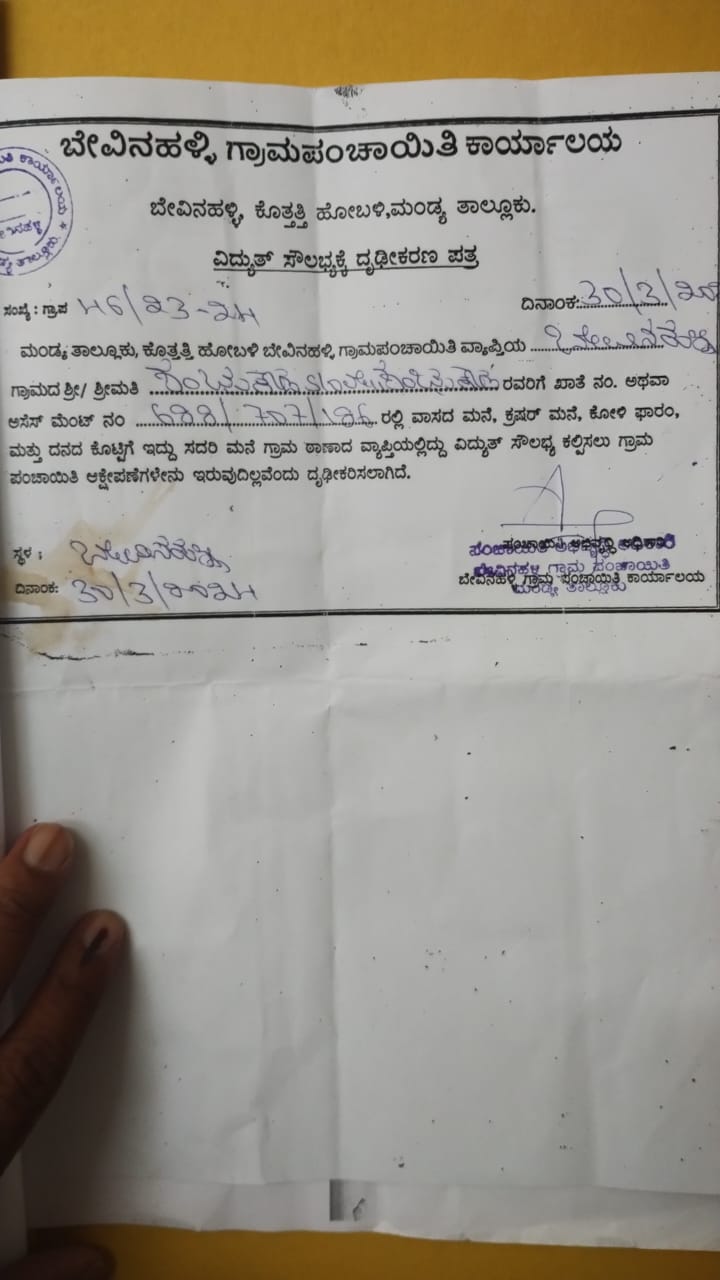 ಬೇವಿನಹಳ್ಳಿ ಗ್ರಾಮಪಂಚಾಯಿತಿ ಕಾರ್ಯಾಲಯ
ಬೇವಿನಹಳ್ಳಿ, ಕೊತ್ತತ್ತಿ ಹೋಬಳಿ,ಮಂಡ್ಯ ತಾಲ್ಲೂಕು.
ವಿದ್ಯುತ್ ಸೌಲಭ್ಯಕ್ಕೆ ದೃಢೀಕರಣ ಪತ್ರ
ಸಂಖ್ಯೆ : ಗ್ರಾಪ 46/23-24 ದಿನಾಂಕ:30/3/20
ಮಂಡ್ಯ ತಾಲ್ಲೂಕು, ಕೊತ್ತತ್ತಿ ಹೋಬಳಿ ಬೇವಿನಹಳ್ಳಿ ಗ್ರಾಮಪಂಚಾಯಿತಿ ವ್ಯಾಪ್ತಿಯ
ಗ್ರಾಮದ ಶ್ರೀ/ ಶ್ರೀಮತಿ ರವರಿಗೆ ಖಾತೆ ನಂ. ಅಥವಾ
ಅಸೆಸ್ ಮೆಂಟ್ ನಂ ರಲ್ಲಿ ವಾಸದ ಮನೆ, ಕ್ರಷರ್ ಮನೆ, ಕೋಳಿ ಫಾರಂ,
ಮತ್ತು ದನದ ಕೊಟ್ಟಿಗೆ ಇದ್ದು ಸದರಿ ಮನೆ ಗ್ರಾಮ ಠಾಣಾದ ವ್ಯಾಪ್ತಿಯಲ್ಲಿದ್ದು ವಿದ್ಯುತ್ ಸೌಲಭ್ಯ ಕಲ್ಪಿಸಲು ಗ್ರಾಮ
ಪಂಚಾಯಿತಿ ಆಕ್ಷೇಪಣೆಗಳೇನು ಇರುವುದಿಲ್ಲವೆಂದು ದೃಢೀಕರಿಸಲಾಗಿದೆ.
ಸ್ಥಳ :
ಪಂಚಾಯಿತಿ ಅಭಿವೃದ್ಧಿ ಅಧಿಕಾರಿ
ಬೇವಿನಹಳ್ಳಿ ಗ್ರಾಮ ಪಂಚಾಯಿತಿ
ದಿನಾಂಕ: 30/3/2024 ಬೇವಿನಹಳ್ಳಿ ಗ್ರಾಮ ಪಂಚಾಯಿತಿ ಕಾರ್ಯಾಲಯ
ಮಂಡ್ಯ ತಾಲ್ಲೂಕು